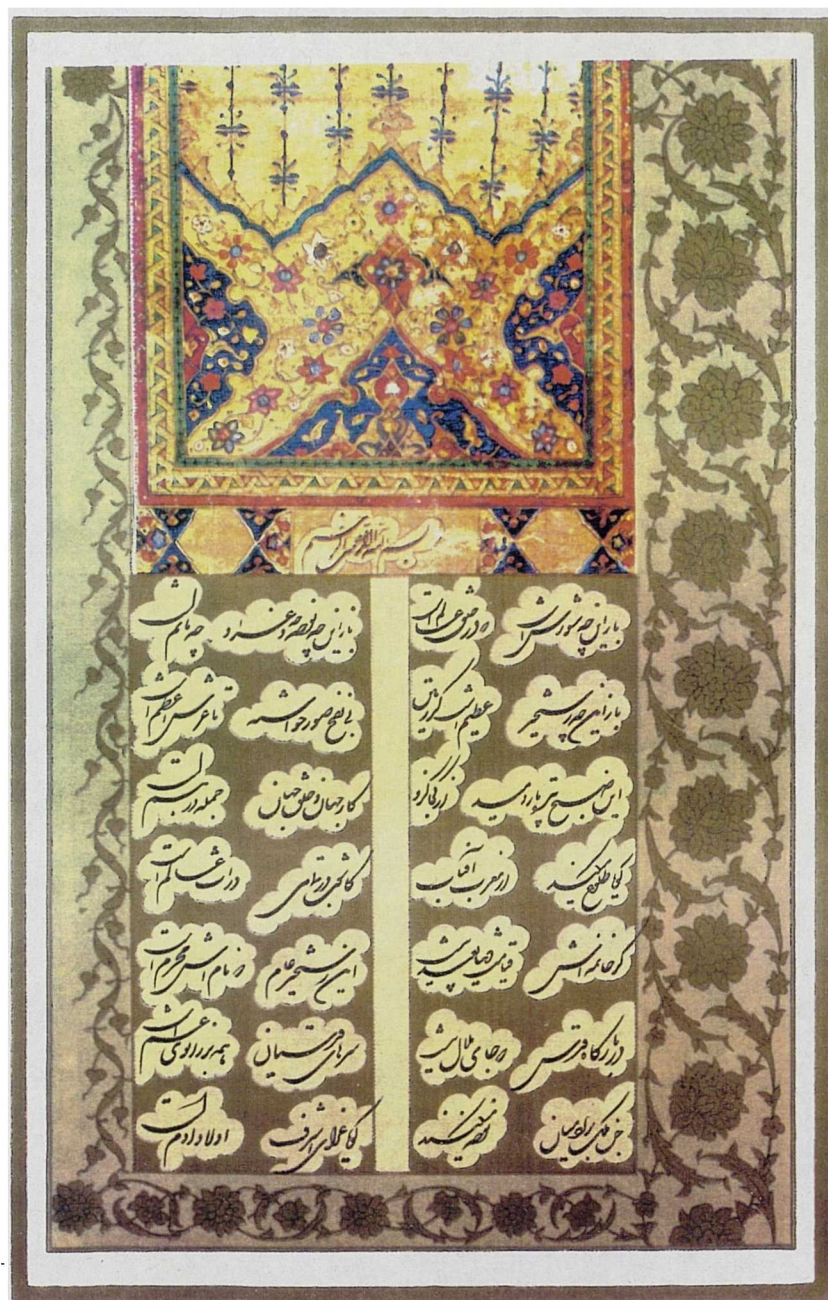 بسم الله الرحمن الرحیم
باز این چه شورش است که در خلق عالم است باز این چه نوحه و چه عزا و چه ماتم است
باز این چه رستخیز عظیم است کز زمین بی نفخ صور خواسته تا عرش اعظم است
این صبح تیره باز دمید از کجا کزو کار جهان و خلق جهان جمله در هم است
گویا طلوع میکند از مغرب آفتاب کاشوب در تمامی ذرات عالم است
گر خوانمش قیامت دنیا بعید نیست این رستخیز عام که نامش محرم است
در بارگاه قدس که جای ملال نیست سرهای قدسیان همه بر زانوی غم است
جن و ملک بر آدمیان نوحه میکنند گویا عزای اشرف اولاد آدم است